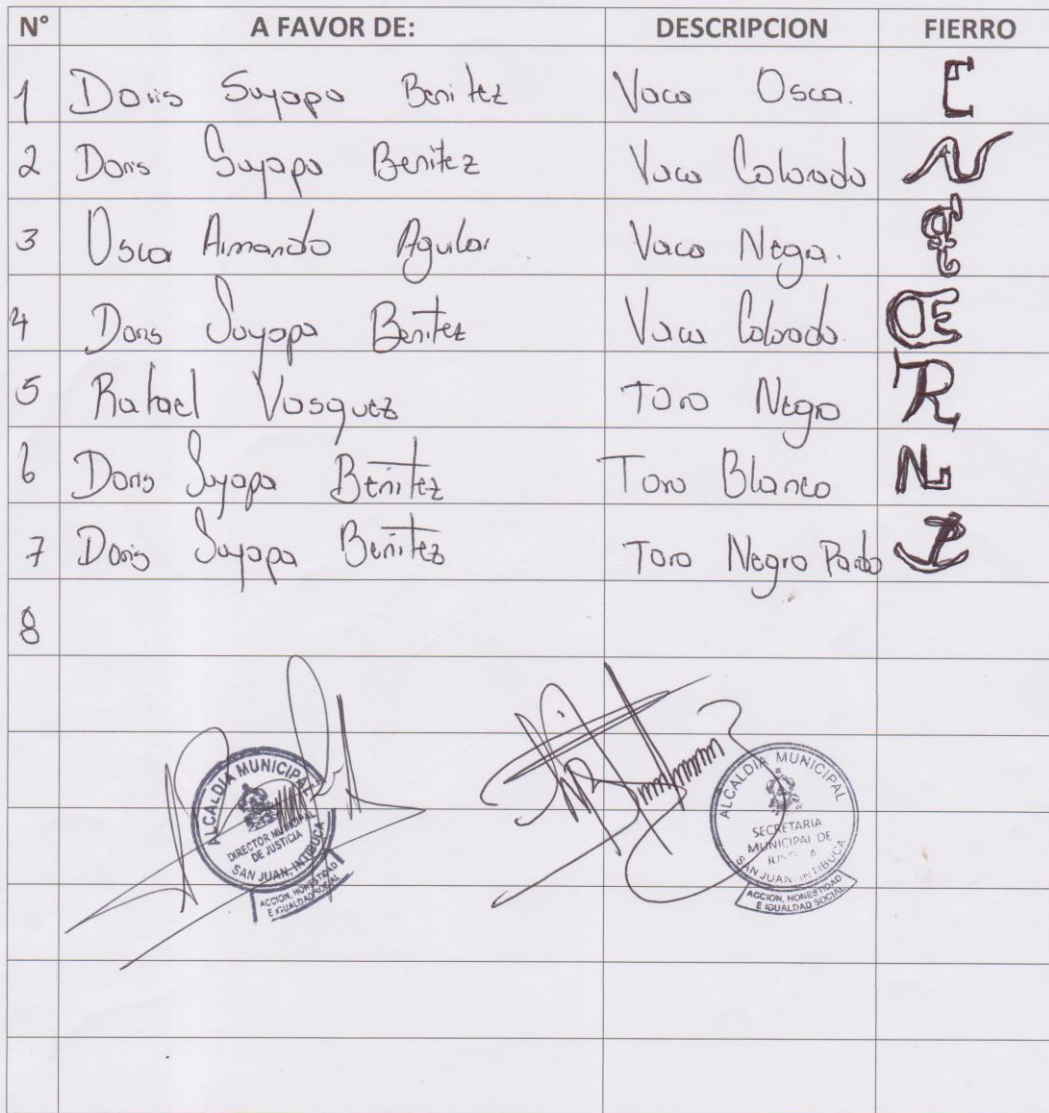 N° A FAVOR DE: DESCRIPCION FIERRO
1 Doris Suyapa Benitez Vaca Osca.
2 Doris Suyapa Benitez Vaca Colorada
3 Oscar Armando Aguilar Vaca Negra.
4 Doris Suyapa Benitez Vaca Colorada.
5 Rafael Vasquez Toro Negro R
6 Doris Suyapa Benitez Toro Blanco
7 Doris Suyapa Benitez Toro Negro Pardo
8
ALCALDIA MUNICIPAL
DIRECTOR MUNICIPAL
DE JUSTICIA
SAN JUAN, INTIBUCA
ACCION, HONESTIDAD
E IGUALDAD SOCIAL
ALCALDIA MUNICIPAL
SECRETARIA
MUNICIPAL DE
SAN JUAN, INTIBUCA
ACCION, HONESTIDAD
E IGUALDAD SOCIAL